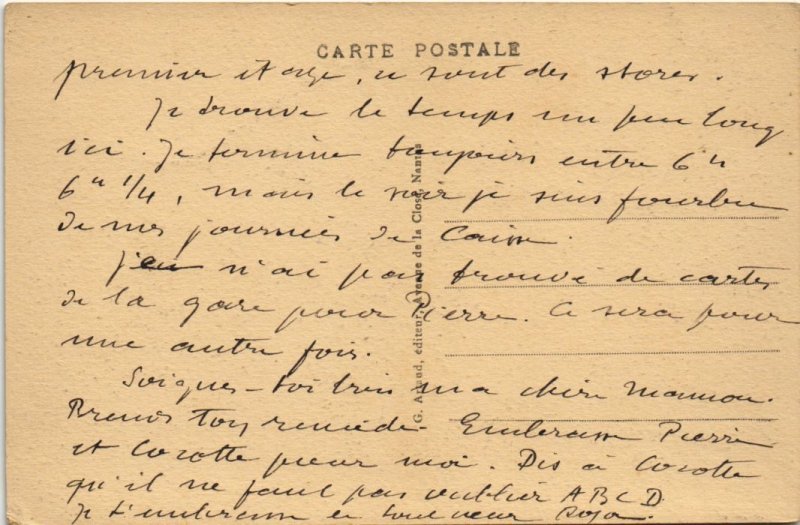 CARTE POSTALE
premier étage, ce sont des stores.
Je trouve le temps un peu long
ici. Je termine toujours entre 6h
6h 1/4, mais le soir je suis fourbue
de mes journées de Caisse.
je n'ai pas trouvé de cartes
de la gare pour Pierre. Ce sera pour
une autre fois.
Soignes-toi bien ma chère Manman.
Prends ton remède. Embrasse Pierre
et Cocotte pour moi. Dis à Cocotte
qu'il ne faut pas oublier ABCD.
Je t'embrasse de tout cœur
G. Artaud, éditeur, Avenue de la Close, Nantes